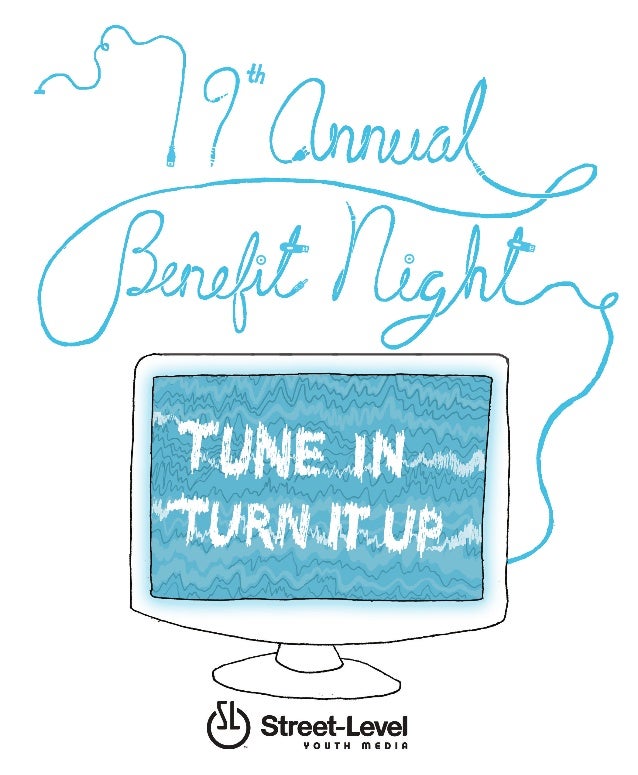 19th Annual
Benefit Night
TUNE IN
TURN IT UP
SL
Street-Level
YOUTH MEDIA